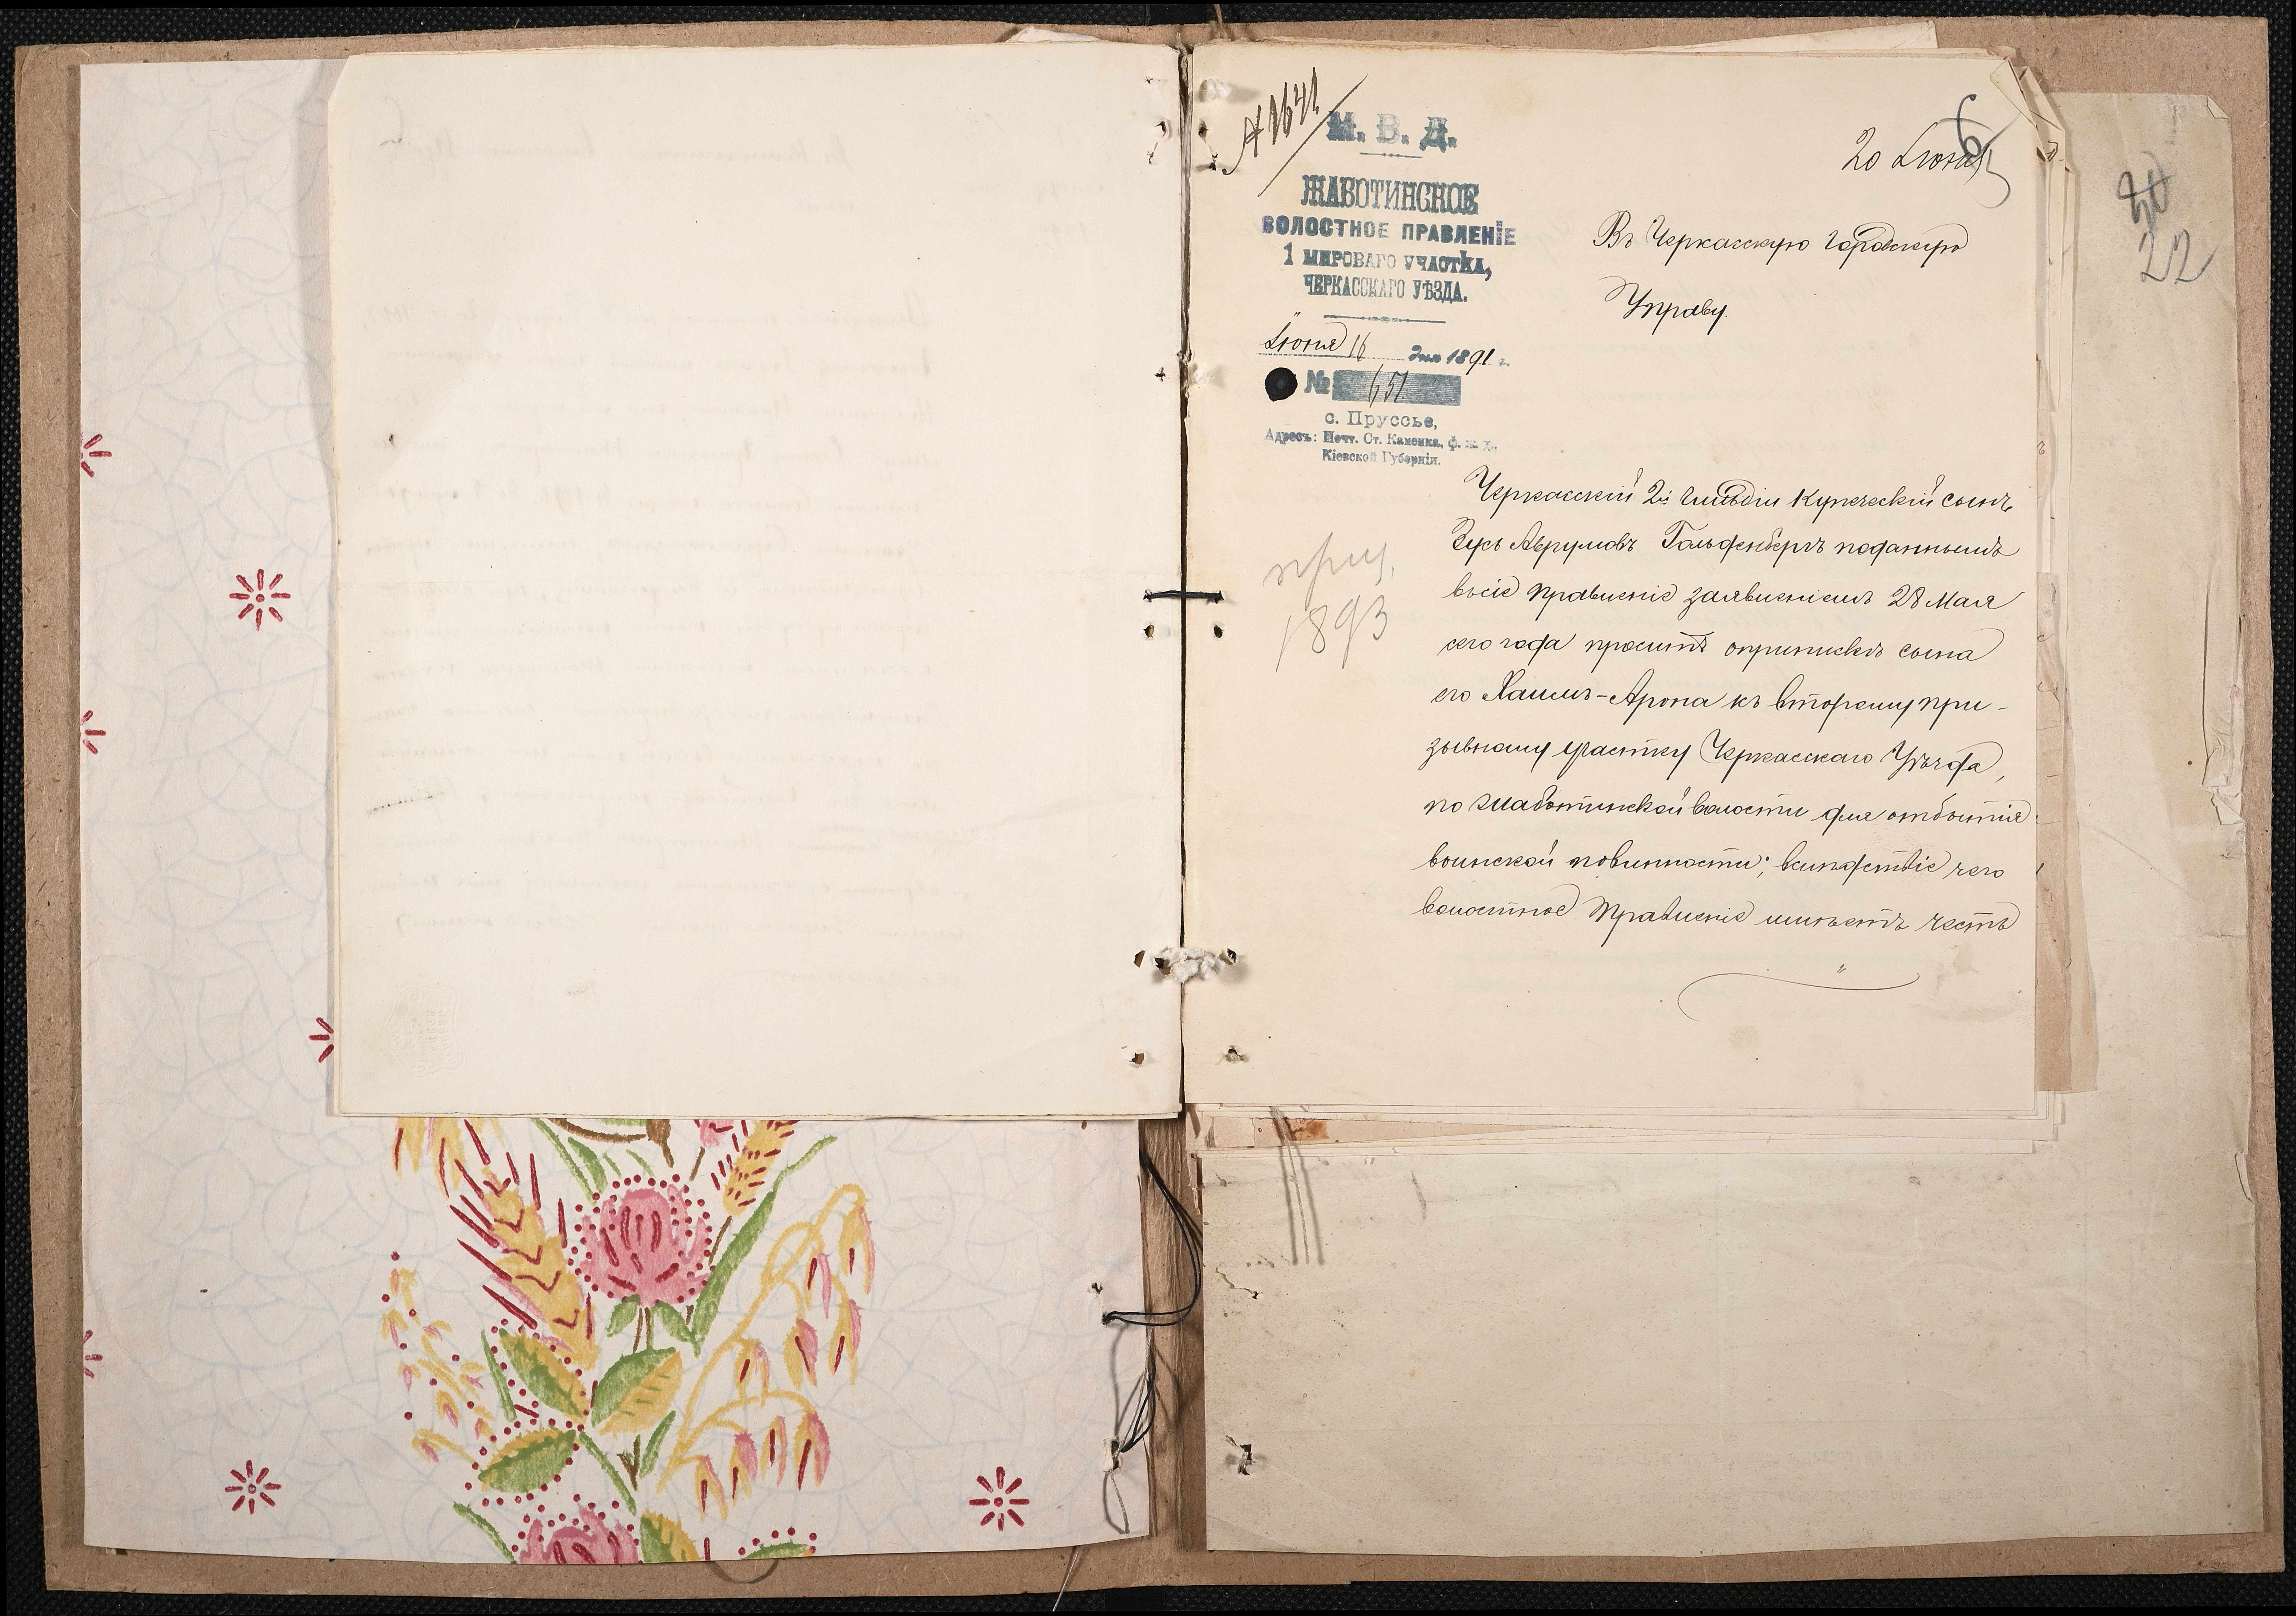 № 1641
М. В. Д.
ЖАБОТИНСКОЕ
ВОЛОСТНОЕ ПРАВЛЕНІЕ
1 МИРОВАГО УЧАСТКА,
ЧЕРКАССКАГО УѢЗДА.
Іюня 16 дня 1891 г.
№ 651
с. Пруссье,
Адресъ: Почт. Ст. Каменка, ф. ж. д.,
Кіевской Губерніи.
6
20 Іюня
30
22
Въ Черкасскую Городскую
Управу.
приз.
1893
Черкасскій 2й Гильдіи Купеческій сынъ
Зусь Аврумовъ Гольденбергъ поданнымъ
въ сіе Правленіе заявленіемъ 28 Мая
сего года проситъ о припискѣ сына
его Хаимъ-Арона къ второму при-
зывному участку Черкасскаго Уѣзда,
по Жаботинской волости для отбытія
воинской повинности; вслѣдствіе чего
волостное Правленіе имѣетъ честь